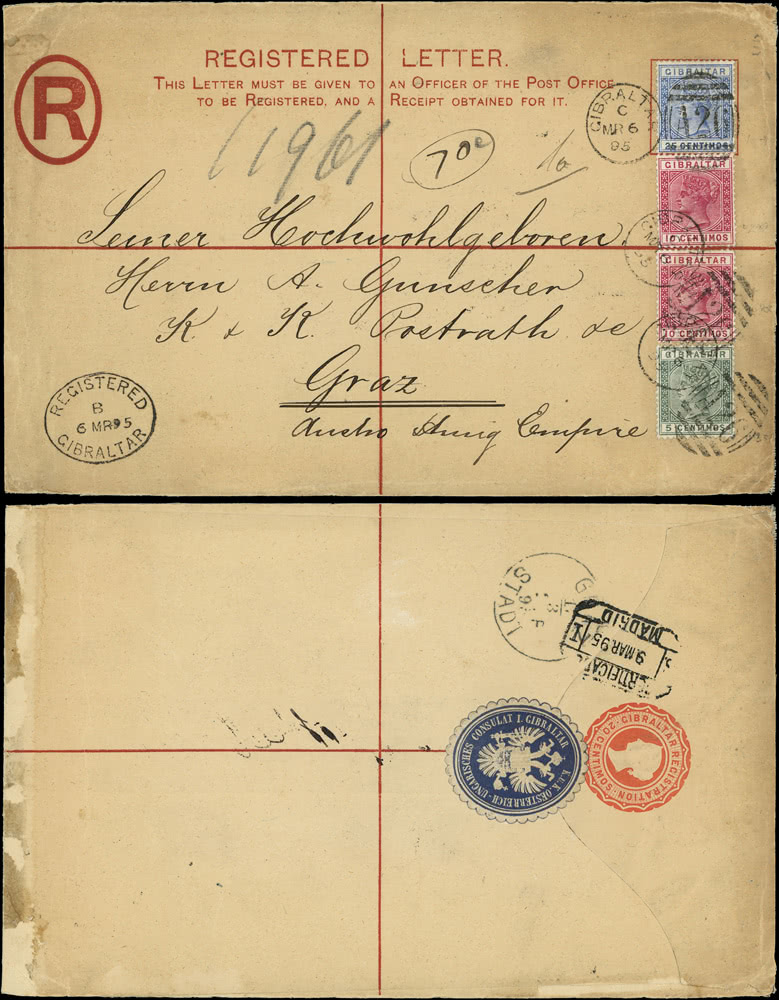 REGISTERED LETTER.
THIS LETTER MUST BE GIVEN TO AN OFFICER OF THE POST OFFICE
TO BE REGISTERED, AND A RECEIPT OBTAINED FOR IT.
R
11961
70c
GIBRALTAR
C
MR 6
95
GIBRALTAR
25 CENTIMOS
GIBRALTAR
10 CENTIMOS
GIBRALTAR
10 CENTIMOS
GIBRALTAR
5 CENTIMOS
Seiner Hochwohlgeboren
Herrn A. Gunscher
K & K. Postrath de
Graz
Austro Hung Empire
REGISTERED
B
6 MR 95
GIBRALTAR
STADT
MADRID
9.MAR.95
K.U.K. OESTERREICH-UNGARISCHES CONSULAT I. GIBRALTAR
GIBRALTAR REGISTRATION
20 CENTIMOS